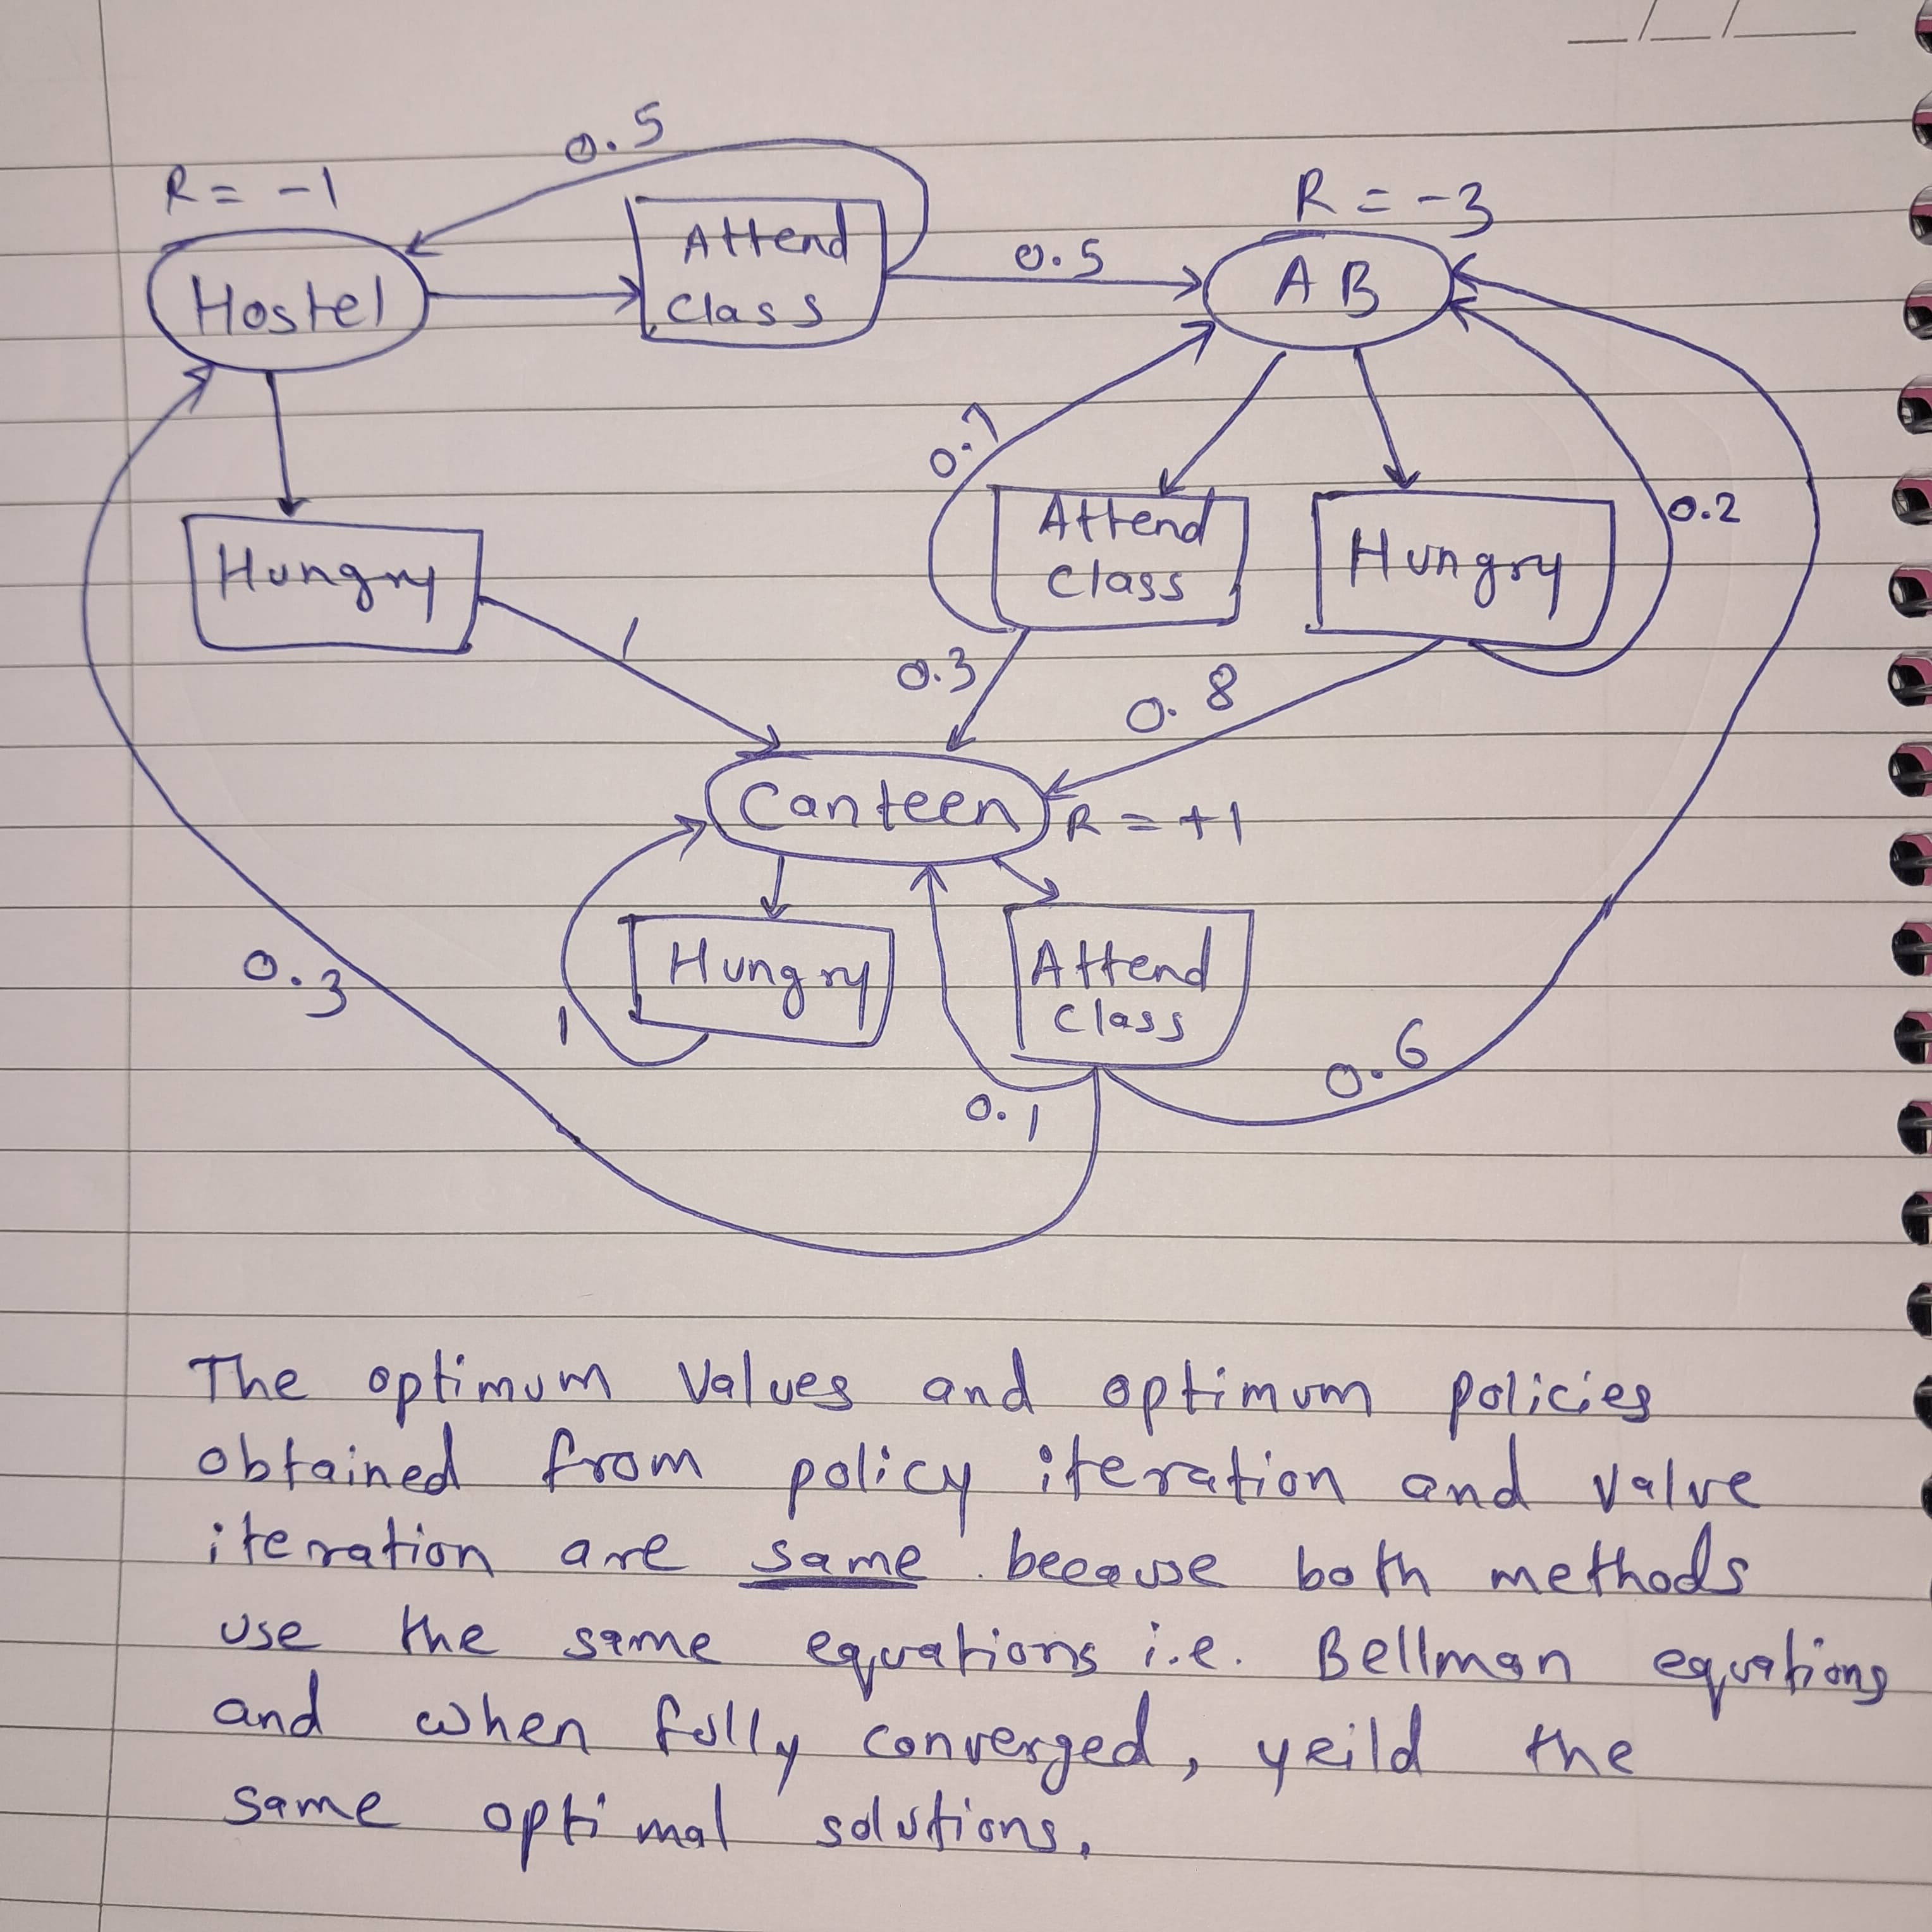 __/__/____
0.5
R = -1
R = -3
Hostel
Attend
Class
0.5
AB
0.7
0.2
Hungry
Attend
Class
Hungry
1
0.3
0.8
Canteen
R = +1
Hungry
Attend
Class
0.3
1
0.1
0.6
The optimum values and optimum policies
obtained from policy iteration and value
iteration are same because both methods
use the same equations i.e. Bellman equations
and when fully converged, yeild the
same optimal solutions.